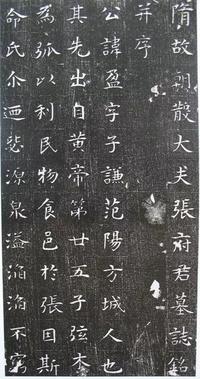 隋故朝散大夫張府君墓誌銘
并序
公諱盈字子謙范陽方城人也
其先出自黃帝第廿五子弦木
為弧以利民物食邑於張因斯
命氏尒迺源泉溢滔滔不窮